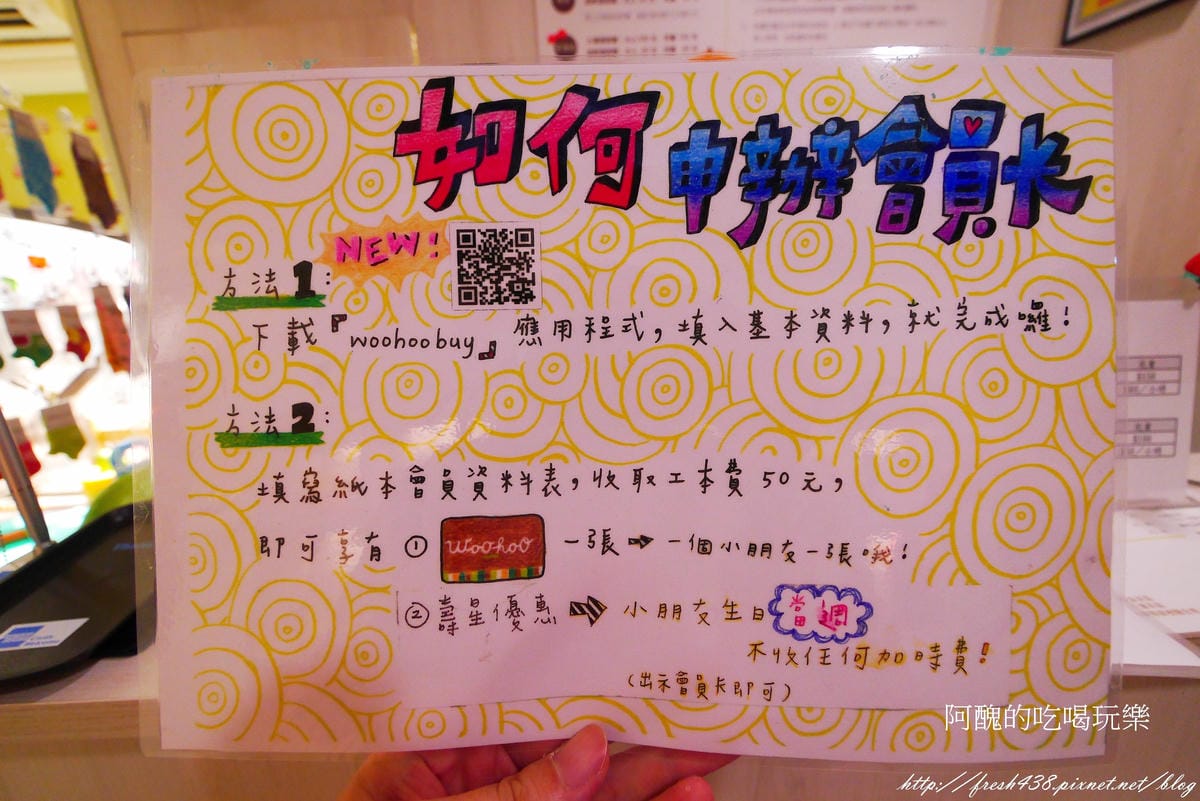 如何申辦會員卡
NEW!
方法1:
下載『woohoobuy』應用程式,填入基本資料,就完成囉!
方法2:
填寫紙本會員資料表,收取工本費50元,
即可享有 ① WOOHOO 一張 → 一個小朋友一張哦!
② 壽星優惠 → 小朋友生日當週
不收任何加時費!
(出示會員卡即可)
阿醜的吃喝玩樂
http://fresh438.pixnet.net/blog